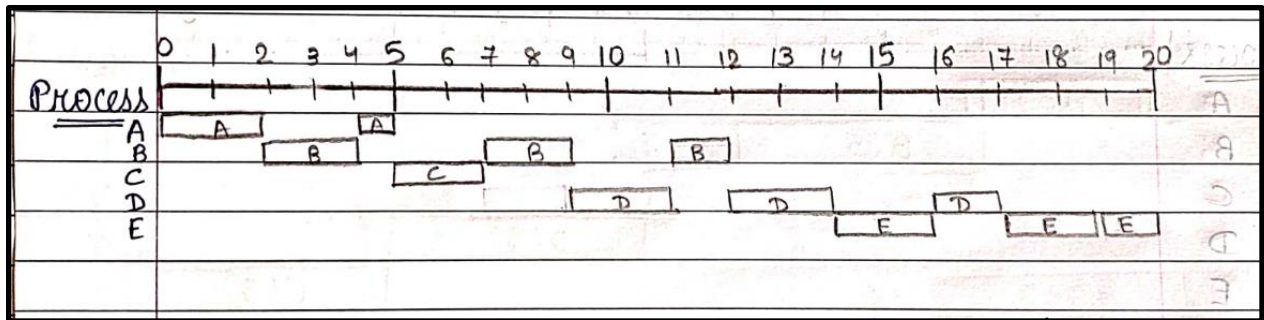 0 1 2 3 4 5 6 7 8 9 10 11 12 13 14 15 16 17 18 19 20
Process
A A A
B B B B
C C
D D D D
E E E E